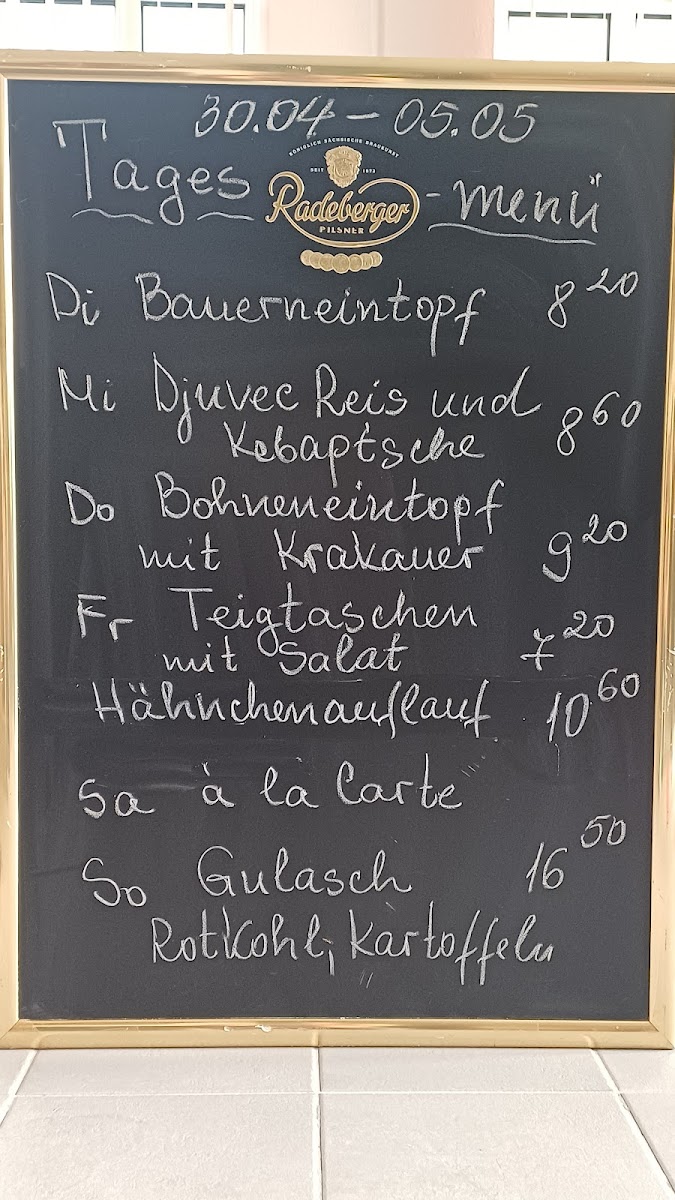 30.04 - 05.05
Tages - menü
KÖNIGLICH SÄCHSISCHE BRAUKUNST
SEIT 1872
Radeberger
PILSNER
Di Bauerneintopf 8 20
Mi Djuvec Reis und
Kebaptsche 8 60
Do Bohneneintopf
mit Krakauer 9 20
Fr Teigtaschen
mit Salat 7 20
Hähnchenauflauf 10 60
Sa à la Carte
So Gulasch 16 50
Rotkohl, Kartoffeln